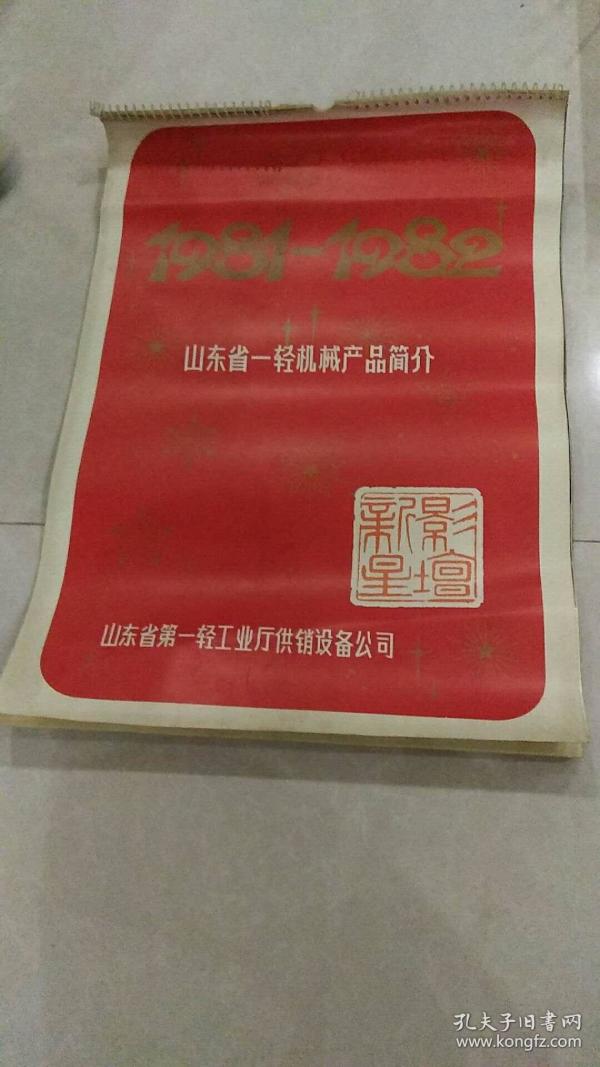 1981-1982
山东省一轻机械产品简介
影坛
新星
山东省第一轻工业厅供销设备公司
孔夫子旧书网
www.kongfz.com